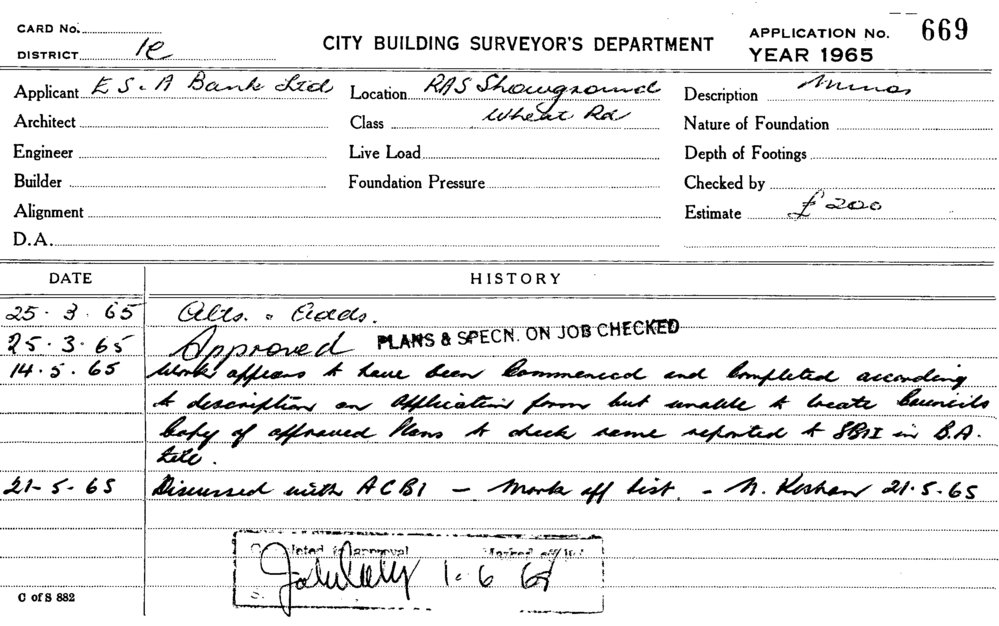 CARD No.
DISTRICT 1e
CITY BUILDING SURVEYOR'S DEPARTMENT
APPLICATION No. 669
YEAR 1965
Applicant E S & A Bank Ltd
Location RAS Showground
Description Minor
Architect
Class Wheat Rd
Nature of Foundation
Engineer
Live Load
Depth of Footings
Builder
Foundation Pressure
Checked by
Alignment
Estimate £ 200
D.A.
DATE HISTORY
25. 3. 65 Alts. & Adds.
25. 3. 65 Approved PLANS & SPECN. ON JOB CHECKED
14. 5. 65 Work appears to have been Commenced and Completed according
to description on Application form but unable to locate Councils
Copy of approved Plans to check same reported to SBI in B.A.
21-5-65 Discussed with ACBI - Mark off list. - 21.5.65
approval Marked off
1. 6
C of S 882